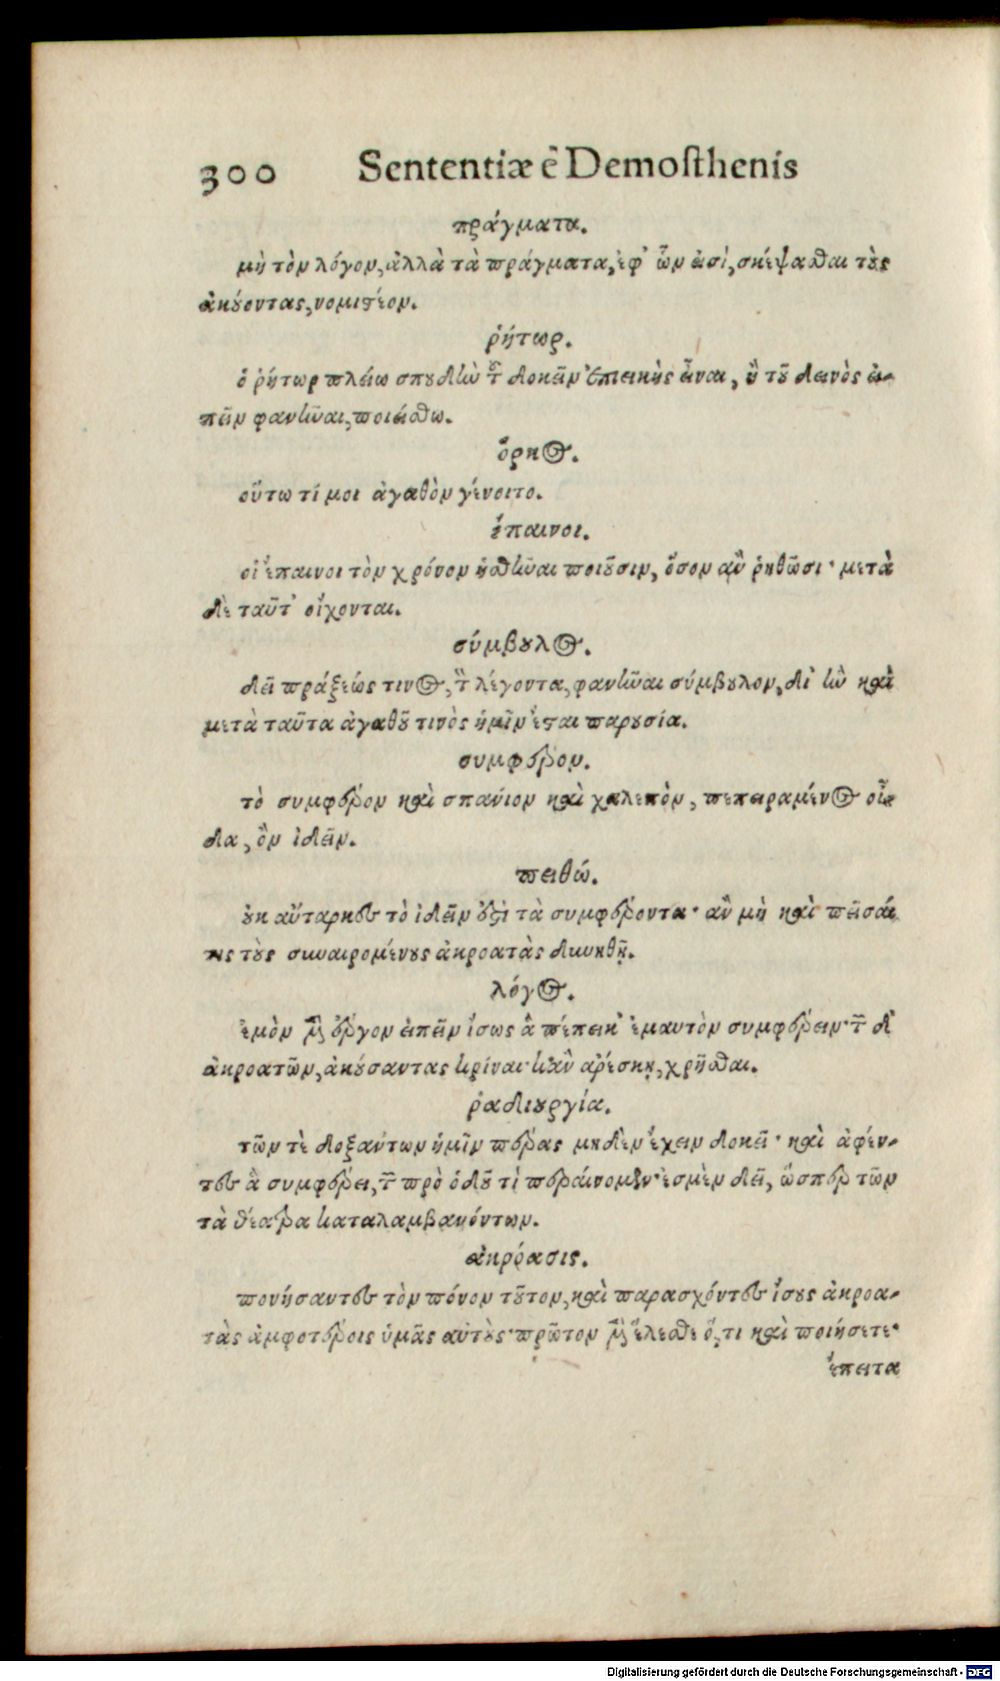 300 Sententiæ è Demosthenis
πράγματα.
μὴ τὸν λόγον, ἀλλὰ τὰ πράγματα, ἐφ' ὧν εἰσὶ, σκέψασθαι τοὺς
ἀκούοντας, νομιστέον.
ῥήτωρ.
ὁ ῥήτωρ πλείω σπουδὴν τοῦ δοκεῖν ἐπιεικὴς εἶναι, ἢ τοῦ δεινὸς εἰ-
πεῖν φανῆναι, ποιείσθω.
ὅρκος.
οὕτω τί μοι ἀγαθὸν γένοιτο.
ἔπαινοι.
οἱ ἔπαινοι τὸν χρόνον ἡσθῆναι ποιοῦσιν, ὅσον ἂν ῥηθῶσι· μετὰ
δὲ ταῦτ' οἴχονται.
σύμβουλος.
δεῖ πράξεώς τινος, τὸν λέγοντα, φανῆναι σύμβουλον, δι' ἣν καὶ
μετὰ ταῦτα ἀγαθοῦ τινὸς ἡμῖν ἔσται παρουσία.
συμφέρον.
τὸ συμφέρον καὶ σπάνιον καὶ χαλεπὸν, πεπειραμένος οἶ-
δα, ὂν ἰδεῖν.
πειθώ.
οὐκ αὔταρκες τὸ ἰδεῖν ἐστὶ τὰ συμφέροντα· ἂν μὴ καὶ πεῖσαί
τις τοὺς συναιρομένους ἀκροατὰς δυνηθῇ.
λόγος.
ἐμὸν μὲν ἔργον εἰπεῖν ἴσως ἃ πέπεικ' ἐμαυτὸν συμφέρειν· τῶν δ'
ἀκροατῶν, ἀκούσαντας κρίναι· κἂν ἀρέσκῃ, χρῆσθαι.
ῥᾳδιουργία.
τῶν τὲ δοξάντων ἡμῖν πέρας μηδὲν ἔχειν δοκεῖ· καὶ ἀφέν-
τες ἃ συμφέρει, τῶν πρὸ ὁδοῦ τὶ περαίνομεν· ἐσμὲν δεῖ, ὥσπερ τῶν
τὰ θέατρα καταλαμβανόντων.
ἀκρόασις.
πονήσαντες τὸν πόνον τοῦτον, καὶ παρασχόντες ἴσους ἀκροα-
τὰς ἀμφοτέροις ὑμᾶς αὐτούς· πρῶτον μὲν ἕλεσθε ὅ, τι καὶ ποιήσετε·
ἔπειτα
Digitalisierung gefördert durch die Deutsche Forschungsgemeinschaft - DFG